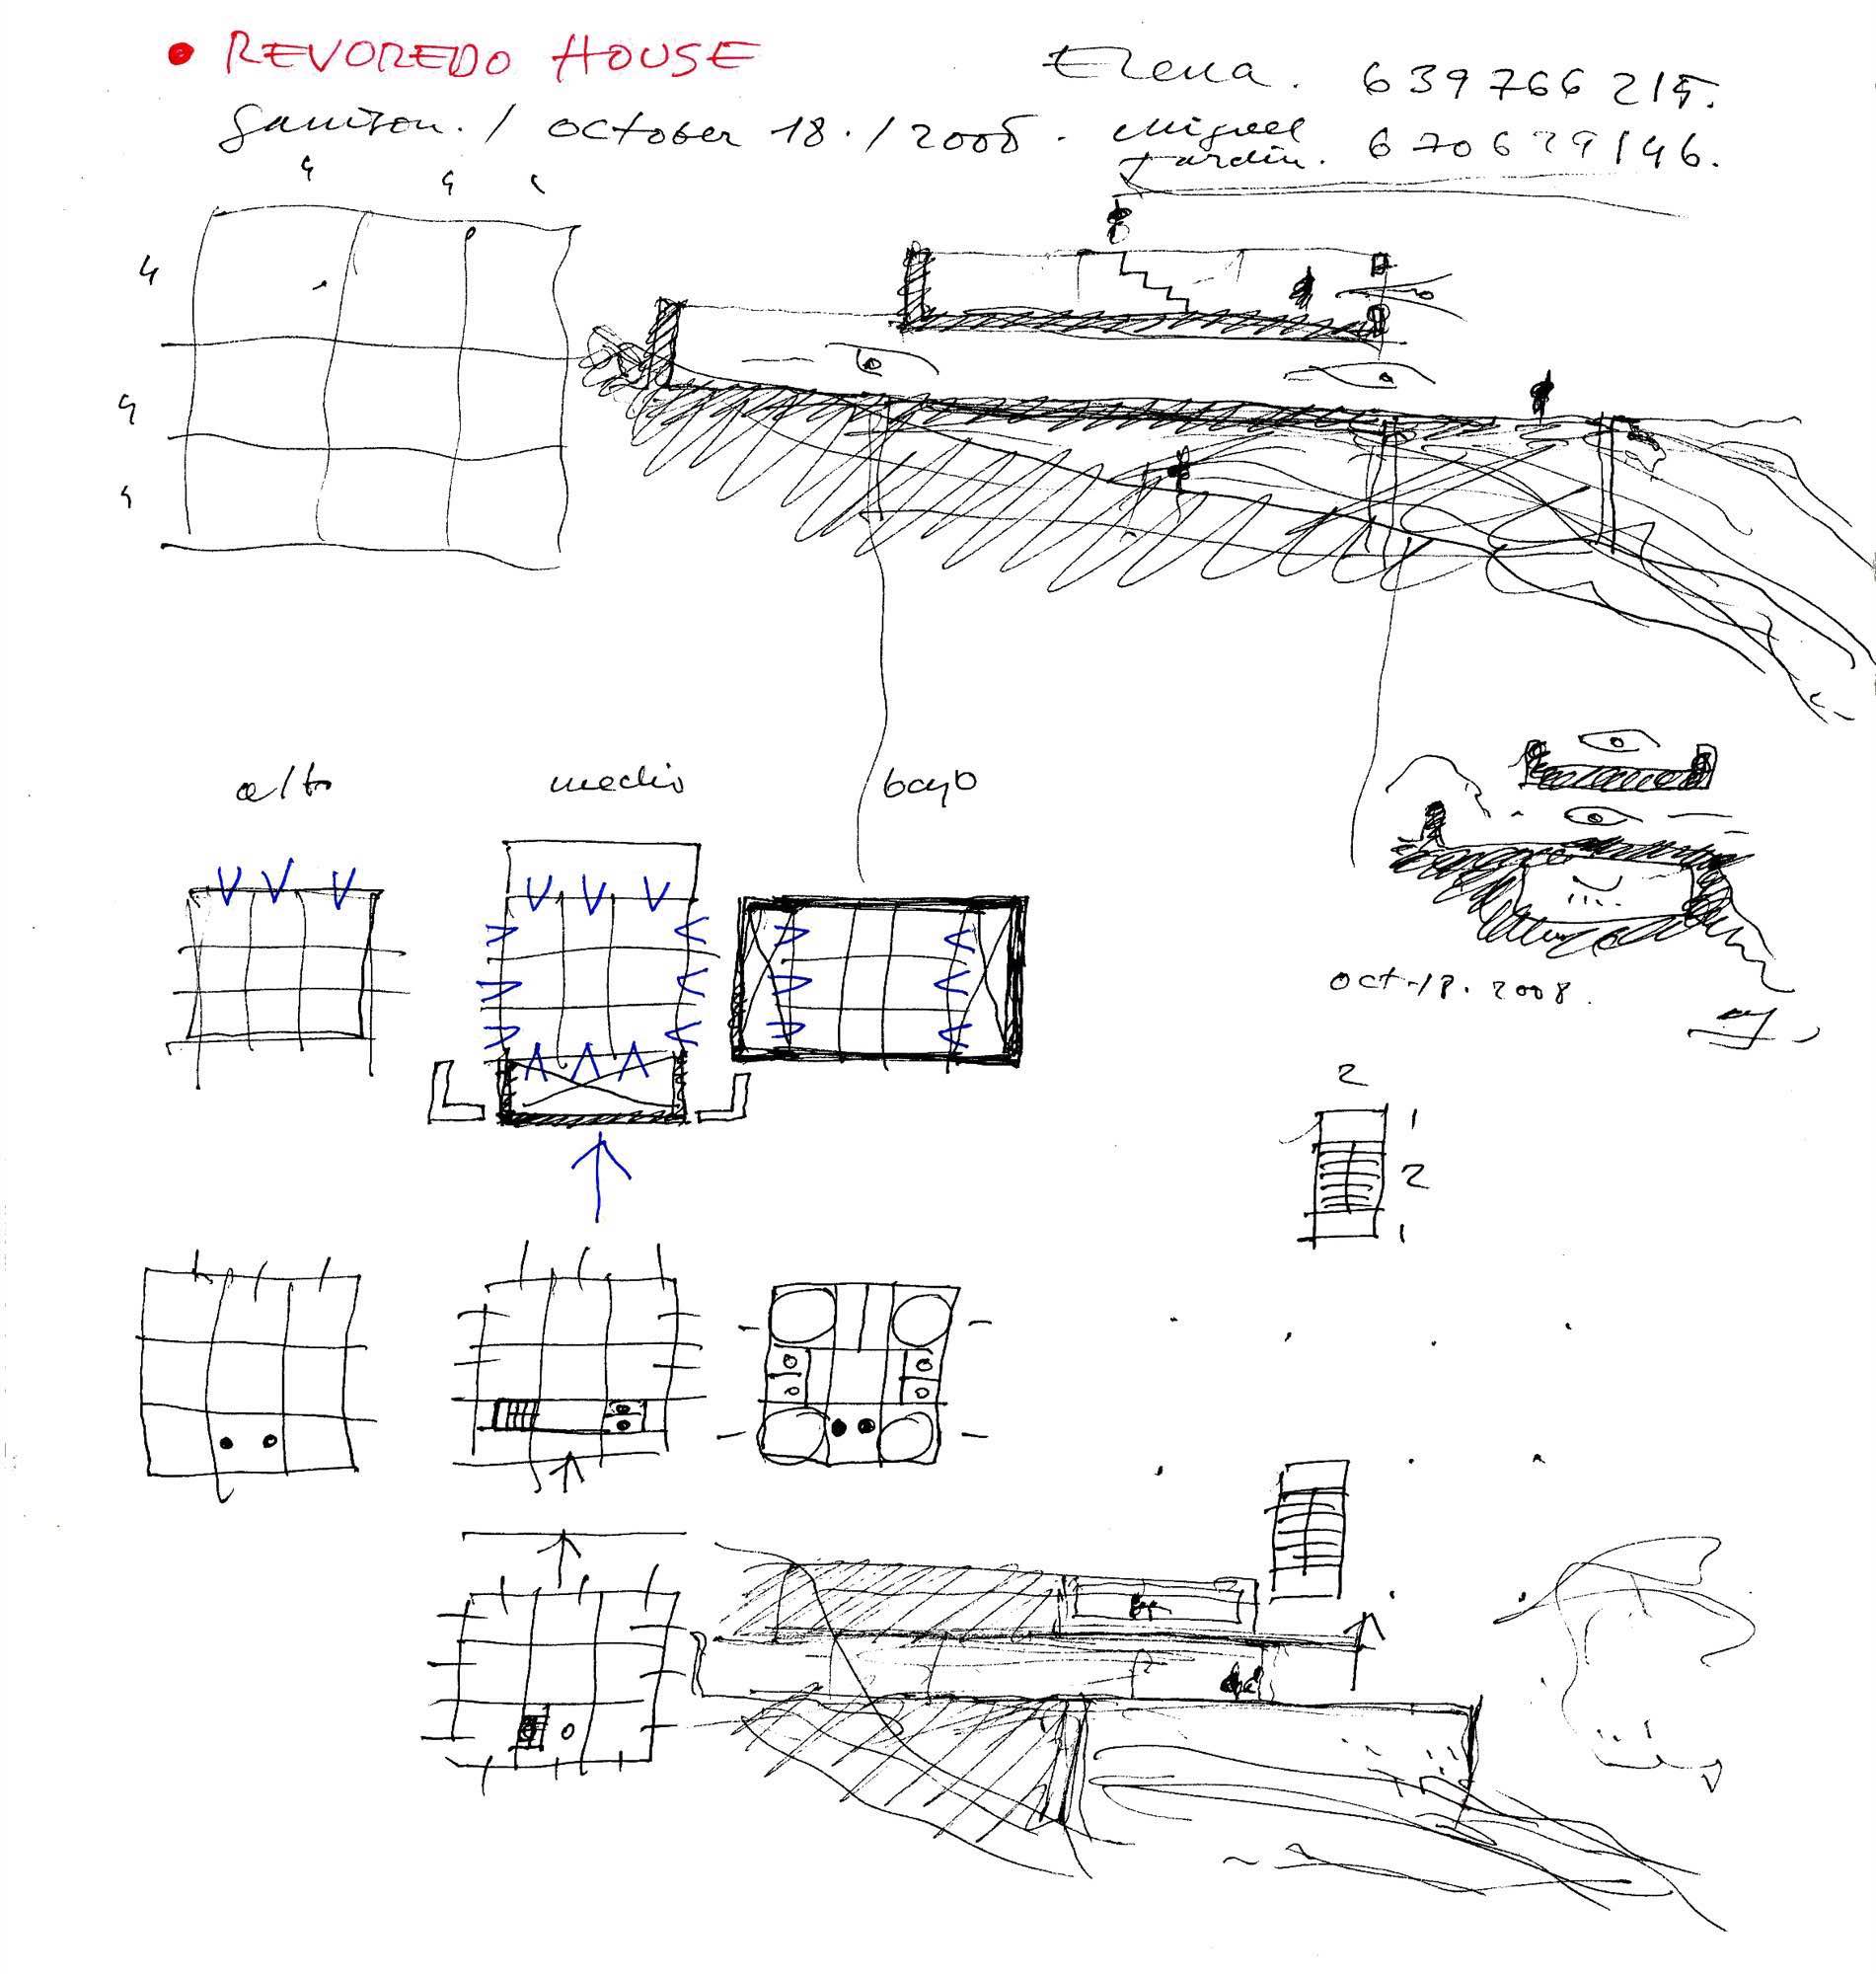 REVOREDO HOUSE
Elena. 639766215.
Garrison. / October 18. / 2008.
Miguel
Jardín. 670629146.
4 4
4
4
4
alto medio bajo
oct-18. 2008.
2
1
2
1